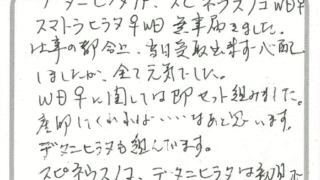 デタニヒラタ♂、スピネウスノコWD♀
スマトラヒラタ♀WD 無事届きました。
仕事の都合上、当日受取出来ず心配
しましたが、全て元気でした。
WD♀に関しては即セット組みました。
産卵してくれれば・・・・なあと思います。
デタニヒラタも組んでます。
スピネウスノコ、デタニヒラタは初